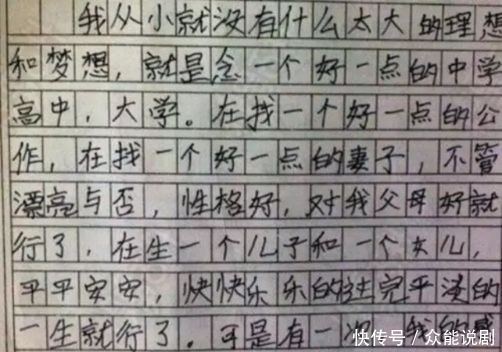 我从小就没有什么太大的理想
和梦想，就是念一个好一点的中学
高中，大学。在找一个好一点的公
作，在找一个好一点的妻子，不管
漂亮与否，性格好，对我父母好就
行了，在生一个儿子和一个女儿，
平平安安，快快乐乐的过完平淡的
一生就行了。可是有一次 我的
快传号/众能说剧